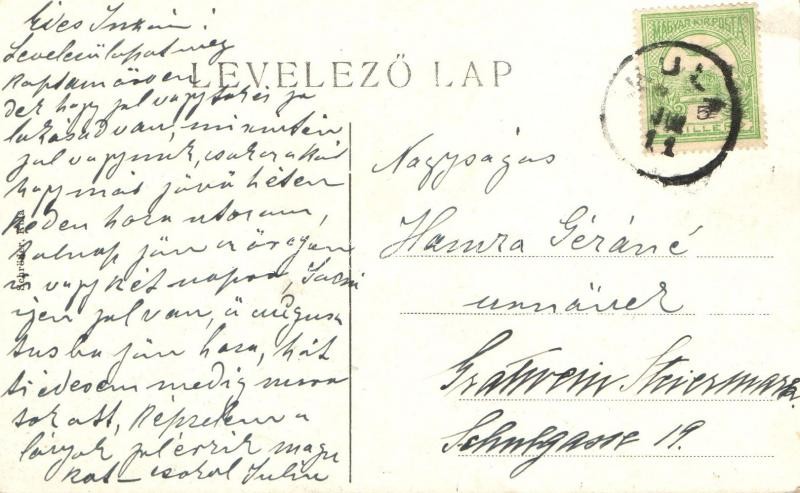 Édes Inkám!
Levelezőlapot meg
kaptam örven
dek hogy jól vagytok és jó
lakásod van, mi szintén
jól vagyunk, csak
hogy már jövő héten
kedden haza utazom,
holnap jön az öregem
is vagy két napra,
igen jól van, ő augusz
tusba jön haza, hát
ti édesem meddig mara
tok ott, képzelem a
lányok jól érzik magu
kat – csókol Julia
LEVELEZŐ LAP
MAGYAR KIR. POSTA
5
FILLÉR
11
Nagyságos
Hamza Gézáné
úrnőnek
Gratwein Steiermark
Schulgasse 19.
Schröder